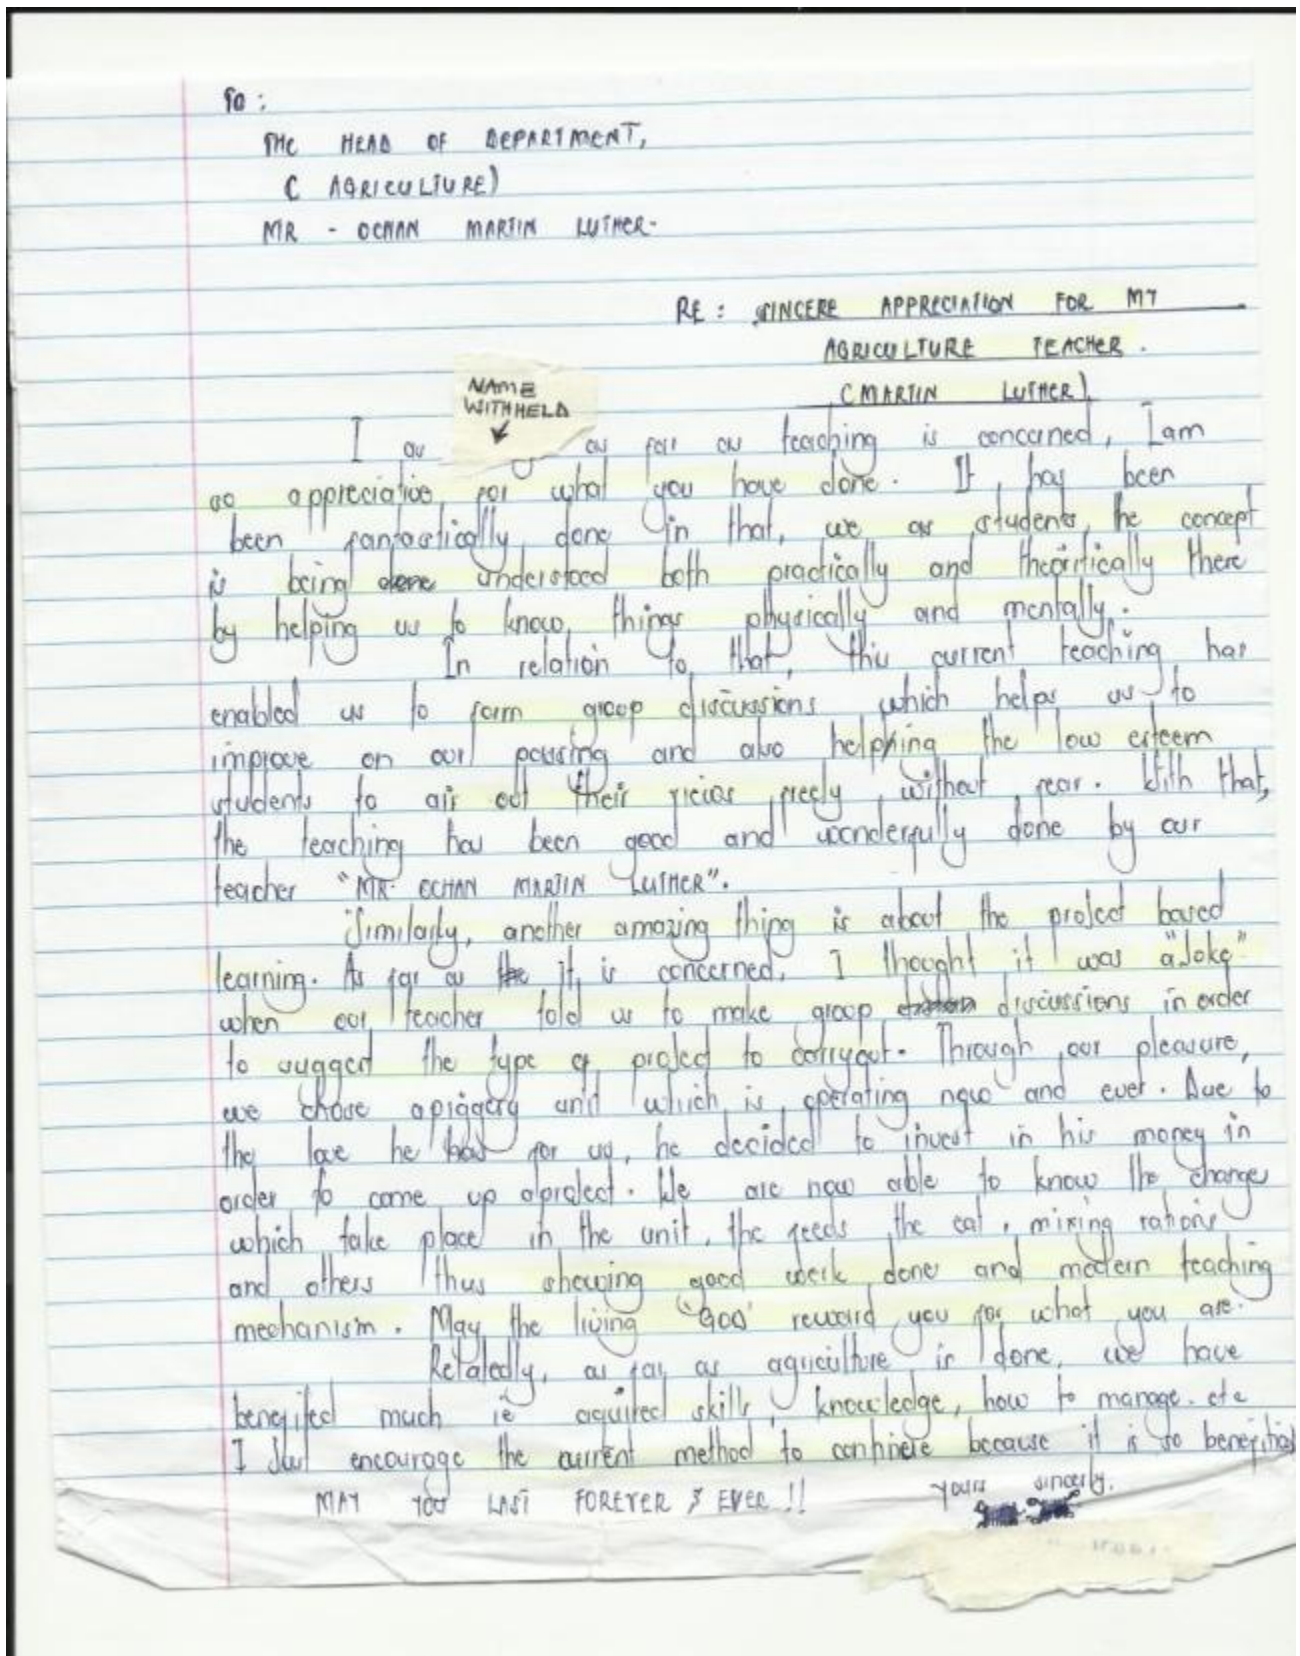 To :
THE HEAD OF DEPARTMENT,
( AGRICULTURE)
MR - OCHAN MARTIN LUTHER-
RE : SINCERE APPRECIATION FOR MY
AGRICULTURE TEACHER .
(MARTIN LUTHER)
NAME
WITHHELD
I as as far as teaching is concerned, I am
so appreciative for what you have done. It has been
been fantastically done in that, we as students, he concept
is being done understood both practically and theoritically there
by helping us to know things physically and mentally.
In relation to that, this current teaching has
enabled us to form group discussions which helps us to
improve on our passing and also helping the low esteem
students to air out their views freely without fear. With that,
the teaching has been good and wonderfully done by our
teacher "MR. OCHAN MARTIN LUTHER".
Similarly, another amazing thing is about the project based
learning. As far as the it is concerned, I thought it was a "Joke"
when our teacher told us to make group discussions in order
to suggest the type of project to carryout. Through our pleasure,
we chose a piggery unit which is operating now and ever. Due to
the love he has for us, he decided to invest in his money in
order to come up a project. We are now able to know the change
which take place in the unit, the feeds the eat, mixing rations
and others thus showing good work done and modern teaching
mechanism. May the living 'GOD' reward you for what you are.
Relatedly, as far as agriculture is done, we have
benefited much ie aquired skills, knowledge, how to manage. etc
I Just encourage the current method to continue because it is so benefitial
MAY YOU LAST FOREVER & EVER !!
yours sincerly.